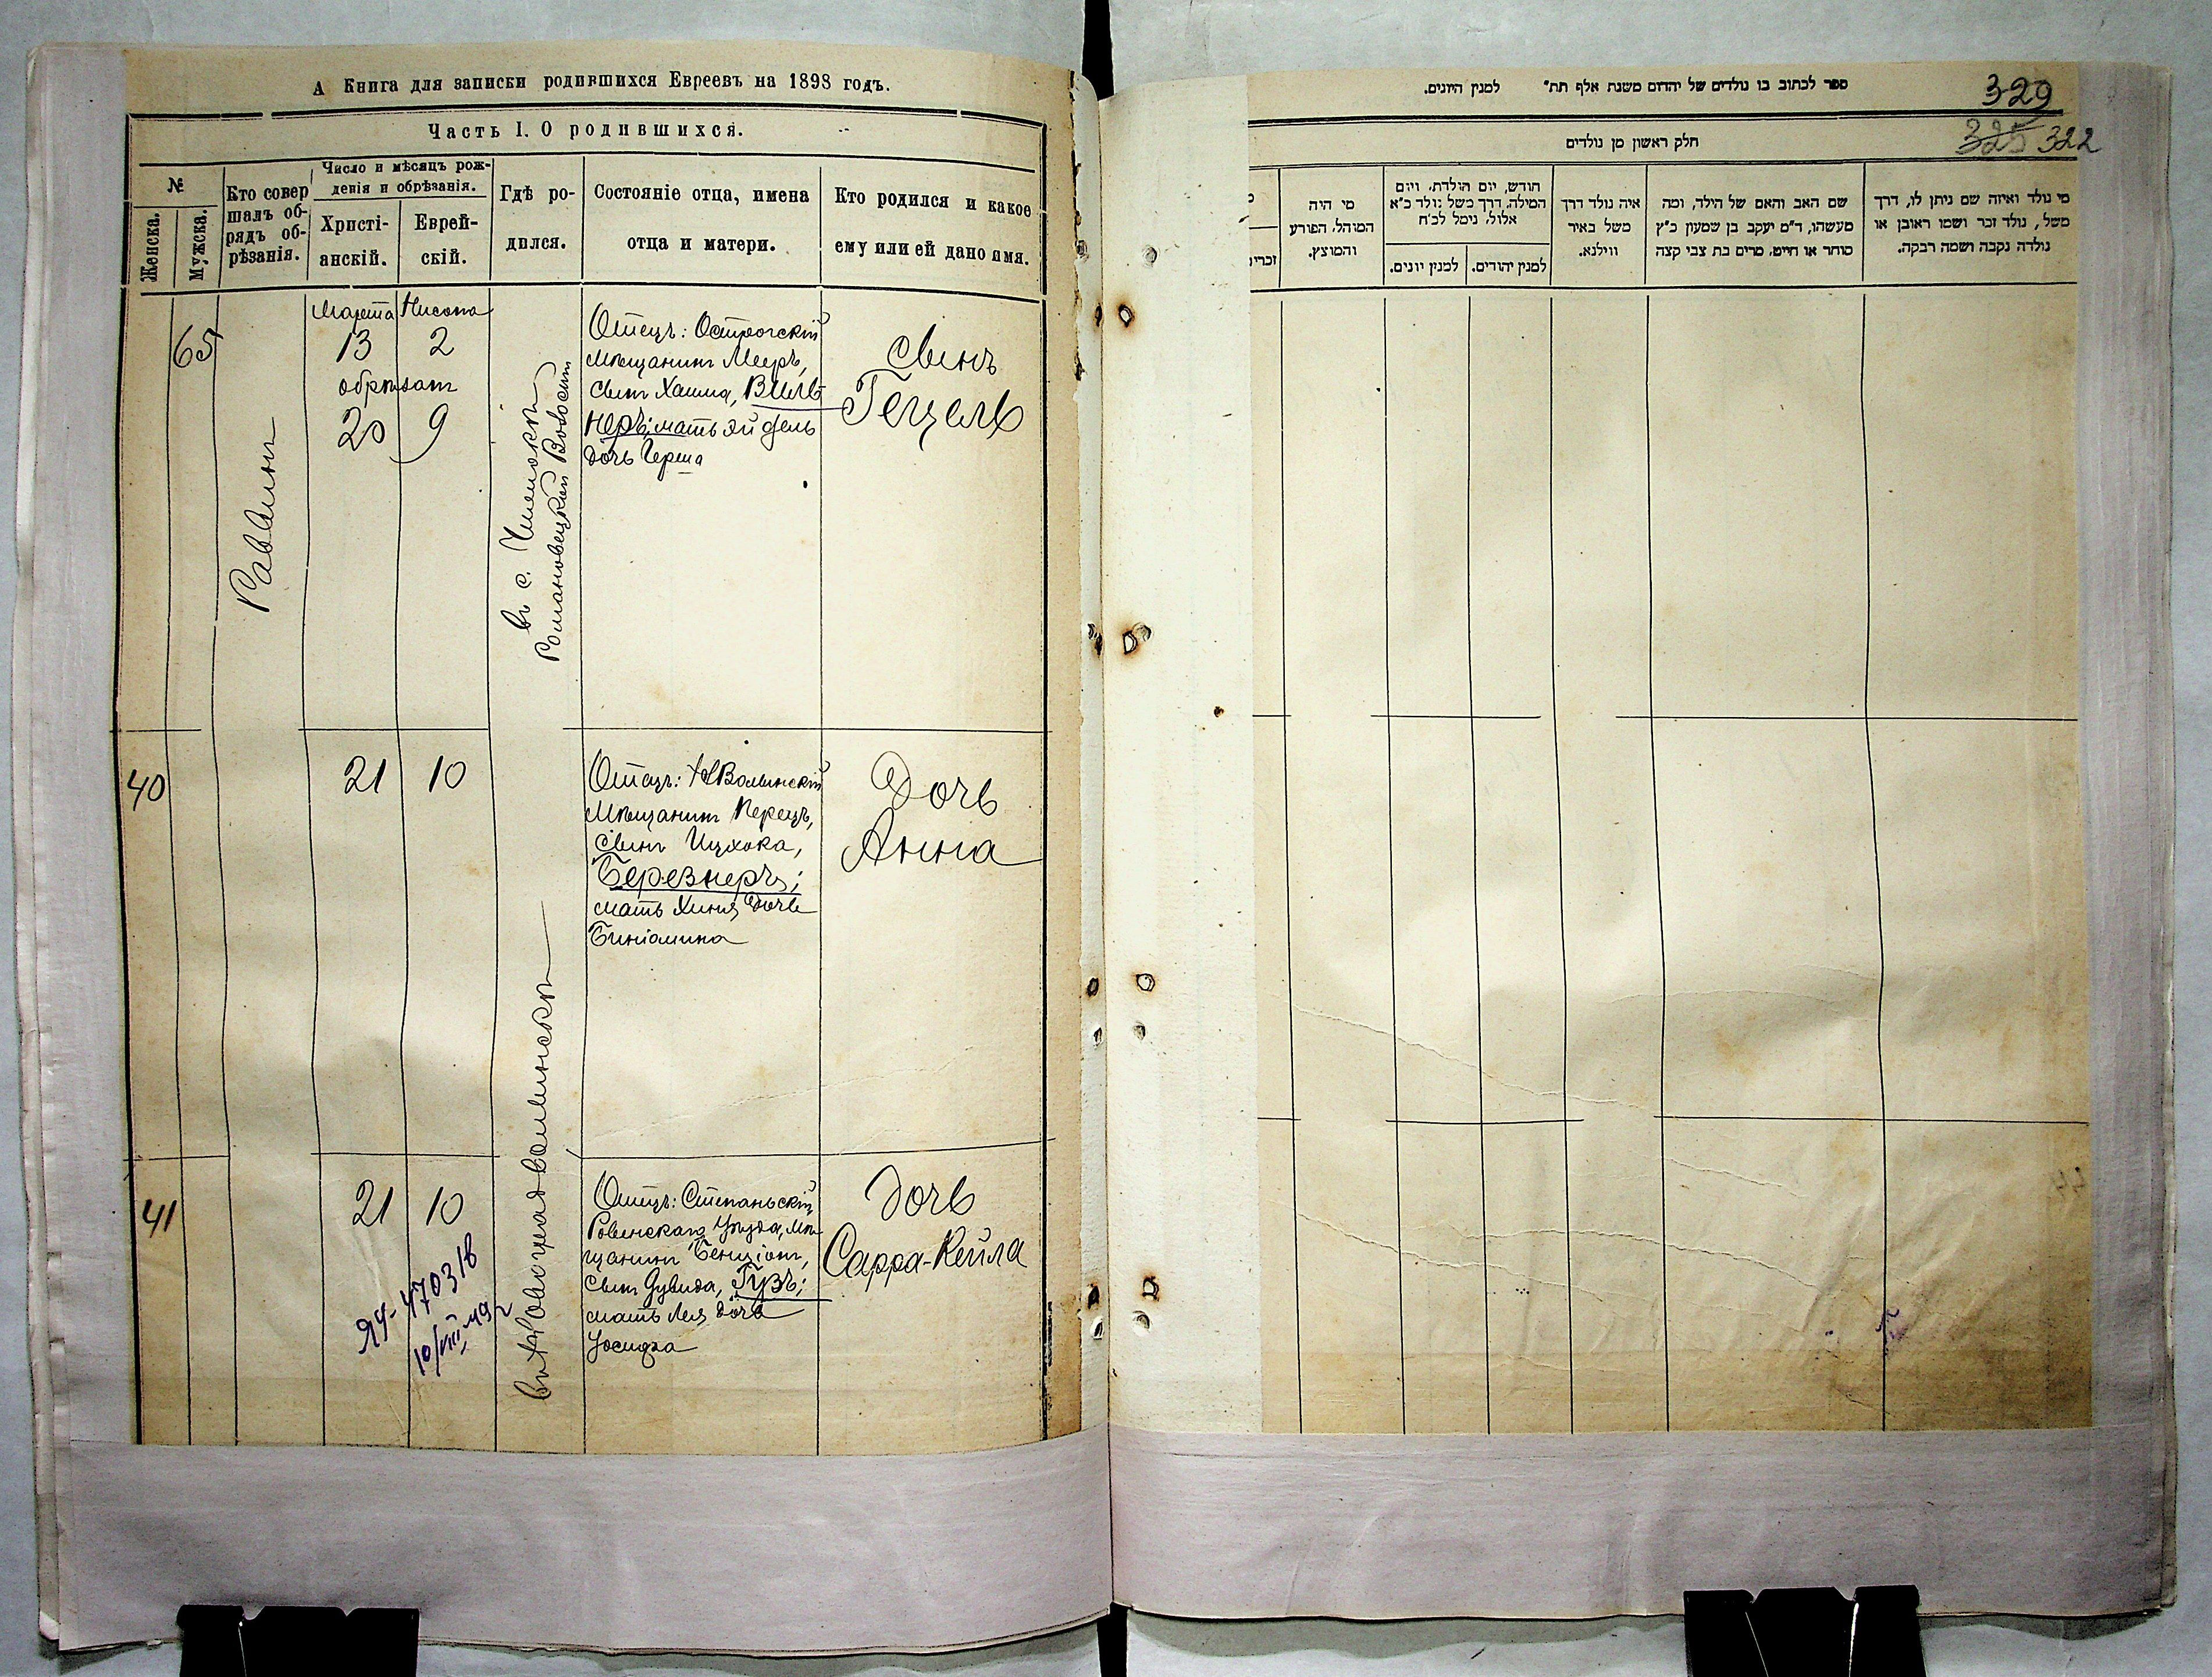 А Книга для записки родившихся Евреевъ на 1898 годъ.
Часть I. О родившихся.
№
Женска.
Мужска.
Кто совер
шалъ об-
рядъ об-
рѣзанія.
Число и мѣсяцъ рож-
денія и обрѣзанія.
Христі-
анскій.
Еврей-
скій.
Гдѣ ро-
дился.
Состояніе отца, имена
отца и матери.
Кто родился и какое
ему или ей дано имя.
65
Раввинъ
Марта Нисона
13 2
обрѣзанъ
20 9
въ с.
Романовецкой Волости
Отецъ: Острогскій
мѣщанинъ Мееръ,
сынъ Хаима, Виль-
неръ; мать Эйдель
дочь Герша
Сынъ
Гецель
40
21 10
Отецъ: НВолынскій
мѣщанинъ Перецъ,
сынъ Ицхока,
Березнеръ;
мать Хиня дочь
Биніомина
Дочь
Анна
41
21 10
ЯЧ-470316
въ Новоградволынскѣ
Отецъ: Степаньскій,
Ровенскаго Уѣзда, мѣ-
щанинъ Бенціонъ,
сынъ Дувида, Гузъ;
мать Лея дочь
Іосифа
Дочь
Сарра-Кейла
ספר לכתוב בו נולדים של יהדים משנת אלף תת״ למנין היונים.
329
325 322
חלק ראשון מן נולדים
מי נולד ואיזה שם ניתן לו, דרך
משל, נולד זכר ושמו ראובן או
נולדה נקבה ושמה רבקה.
שם האב והאם של הילד, ומה
מעשהו, ד״מ יעקב בן שמעון כ״ץ
סוחר או חייט, מרים בת צבי קצה
איה נולד דרך
משל באיר
ווילנא.
חודש, יום הולדת, ויום
המילה, דרך משל נולד כ״א
אלול, נימל לכ״ח
למנין יהודים.
למנין יונים.
מי היה
המוהל, הפורע
והמוצץ.